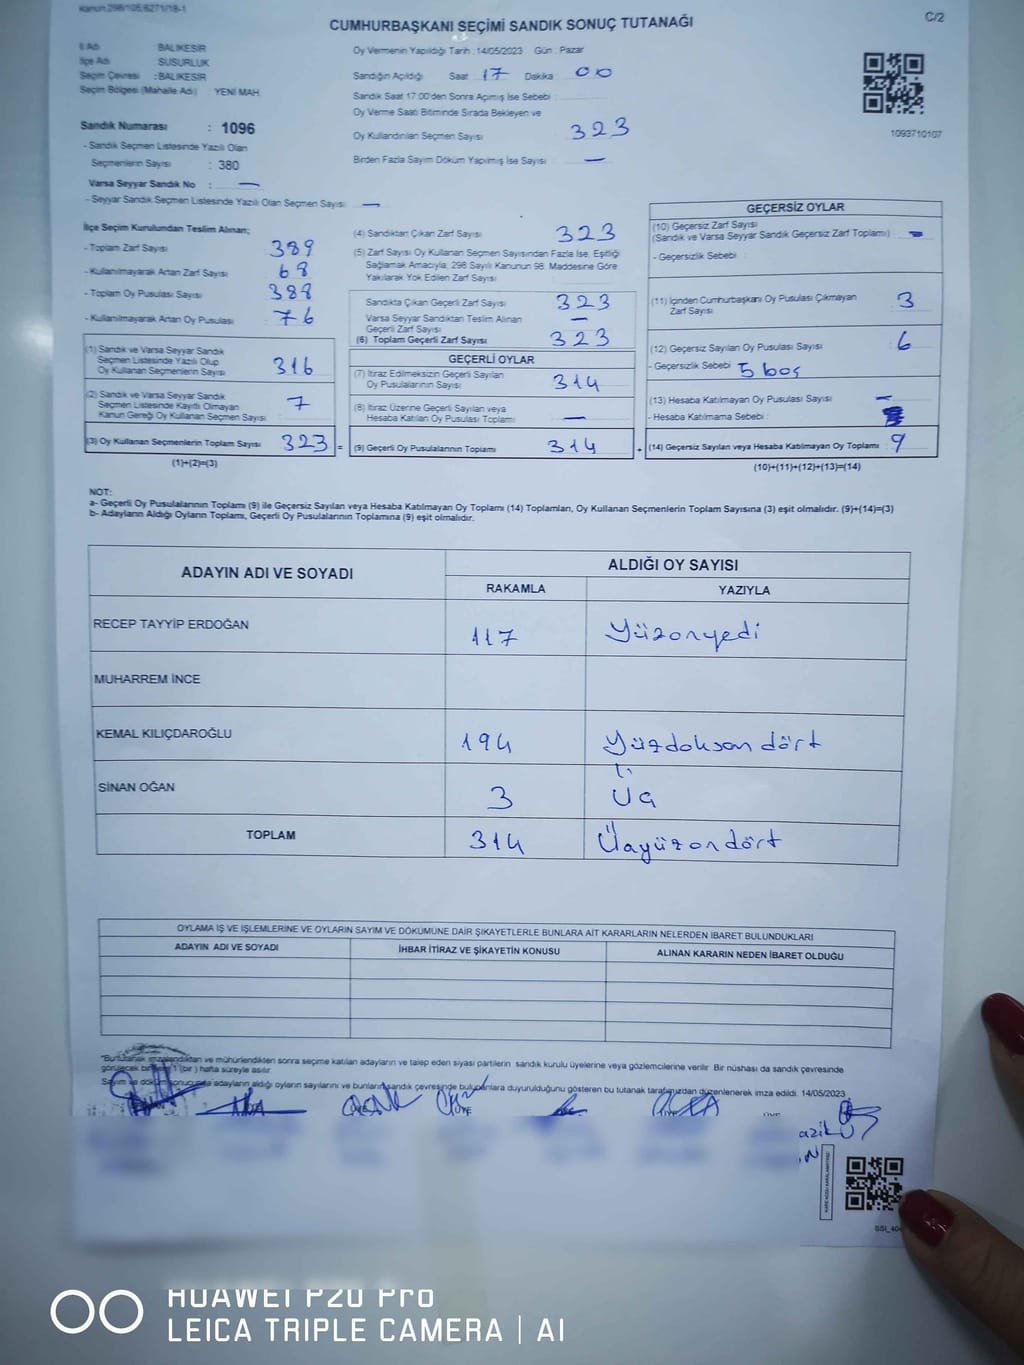 Kanun:298/105,6271/18-1
CUMHURBAŞKANI SEÇİMİ SANDIK SONUÇ TUTANAĞI
C/2
İl Adı : BALIKESİR
İlçe Adı : SUSURLUK
Seçim Çevresi : BALIKESİR
Seçim Bölgesi (Mahalle Adı) : YENİ MAH.
Sandık Numarası : 1096
- Sandık Seçmen Listesinde Yazılı Olan
Seçmenlerin Sayısı : 380
Varsa Seyyar Sandık No : —
- Seyyar Sandık Seçmen Listesinde Yazılı Olan Seçmen Sayısı : —
Oy Vermenin Yapıldığı Tarih : 14/05/2023 Gün : Pazar
Sandığın Açıldığı Saat 17 Dakika : 00
Sandık Saat 17:00'den Sonra Açımış İse Sebebi :
Oy Verme Saati Bitiminde Sırada Bekleyen ve
Oy Kullandırılan Seçmen Sayısı 323
Birden Fazla Sayım Döküm Yapılmış İse Sayısı : —
1093710107
İlçe Seçim Kurulundan Teslim Alınan;
- Toplam Zarf Sayısı : 389
- Kullanılmayarak Artan Zarf Sayısı : 68
- Toplam Oy Pusulası Sayısı : 388
- Kullanılmayarak Artan Oy Pusulası : 76
(1) Sandık ve Varsa Seyyar Sandık
Seçmen Listesinde Yazılı Olup
Oy Kullanan Seçmenlerin Sayısı : 316
(2) Sandık ve Varsa Seyyar Sandık
Seçmen Listesinde Kayıtlı Olmayan
Kanun Gereği Oy Kullanan Seçmen Sayısı : 7
(3) Oy Kullanan Seçmenlerin Toplam Sayısı : 323 =
(1)+(2)=(3)
(4) Sandıktan Çıkan Zarf Sayısı : 323
(5) Zarf Sayısı Oy Kullanan Seçmen Sayısından Fazla İse, Eşitliği
Sağlamak Amacıyla, 298 Sayılı Kanunun 98. Maddesine Göre
Yakılarak Yok Edilen Zarf Sayısı :
Sandıkta Çıkan Geçerli Zarf Sayısı : 323
Varsa Seyyar Sandıktan Teslim Alınan
Geçerli Zarf Sayısı : —
(6) Toplam Geçerli Zarf Sayısı : 323
GEÇERLİ OYLAR
(7) İtiraz Edilmeksizin Geçerli Sayılan
Oy Pusulalarının Sayısı : 314
(8) İtiraz Üzerine Geçerli Sayılan veya
Hesaba Katılan Oy Pusulası Toplamı : —
(9) Geçerli Oy Pusulalarının Toplamı : 314 +
GEÇERSİZ OYLAR
(10) Geçersiz Zarf Sayısı
(Sandık ve Varsa Seyyar Sandık Geçersiz Zarf Toplamı) : —
- Geçersizlik Sebebi :
(11) İçinden Cumhurbaşkanı Oy Pusulası Çıkmayan
Zarf Sayısı : 3
(12) Geçersiz Sayılan Oy Pusulası Sayısı : 6
- Geçersizlik Sebebi : 5 boş
(13) Hesaba Katılmayan Oy Pusulası Sayısı : —
- Hesaba Katılmama Sebebi :
(14) Geçersiz Sayılan veya Hesaba Katılmayan Oy Toplamı : 9
(10)+(11)+(12)+(13)=(14)
NOT:
a- Geçerli Oy Pusulalarının Toplamı (9) ile Geçersiz Sayılan veya Hesaba Katılmayan Oy Toplamı (14) Toplamları, Oy Kullanan Seçmenlerin Toplam Sayısına (3) eşit olmalıdır. (9)+(14)=(3)
b- Adayların Aldığı Oyların Toplamı, Geçerli Oy Pusulalarının Toplamına (9) eşit olmalıdır.
ADAYIN ADI VE SOYADI
ALDIĞI OY SAYISI
RAKAMLA YAZIYLA
RECEP TAYYİP ERDOĞAN 117 Yüzonyedi
MUHARREM İNCE
KEMAL KILIÇDAROĞLU 194 Yüzdoksan dört
SİNAN OĞAN 3 Üç
TOPLAM 314 Üçyüzondört
OYLAMA İŞ VE İŞLEMLERİNE VE OYLARIN SAYIM VE DÖKÜMÜNE DAİR ŞİKAYETLERLE BUNLARA AİT KARARLARIN NELERDEN İBARET BULUNDUKLARI
ADAYIN ADI VE SOYADI İHBAR İTİRAZ VE ŞİKAYETİN KONUSU ALINAN KARARIN NEDEN İBARET OLDUĞU
*Bu tutanak imzalandıktan ve mühürlendikten sonra seçime katılan adayların ve talep eden siyasi partilerin sandık kurulu üyelerine veya gözlemcilerine verilir. Bir nüshası da sandık çevresinde
görülecek bir yere 1 (bir) hafta süreyle asılır.
Sayım ve döküm sonucunda adayların aldığı oyların sayılarını ve bunların sandık çevresinde bulunanlara duyurulduğunu gösteren bu tutanak tarafımızdan düzenlenerek imza edildi. 14/05/2023
HUAWEI P20 Pro
LEICA TRIPLE CAMERA | AI